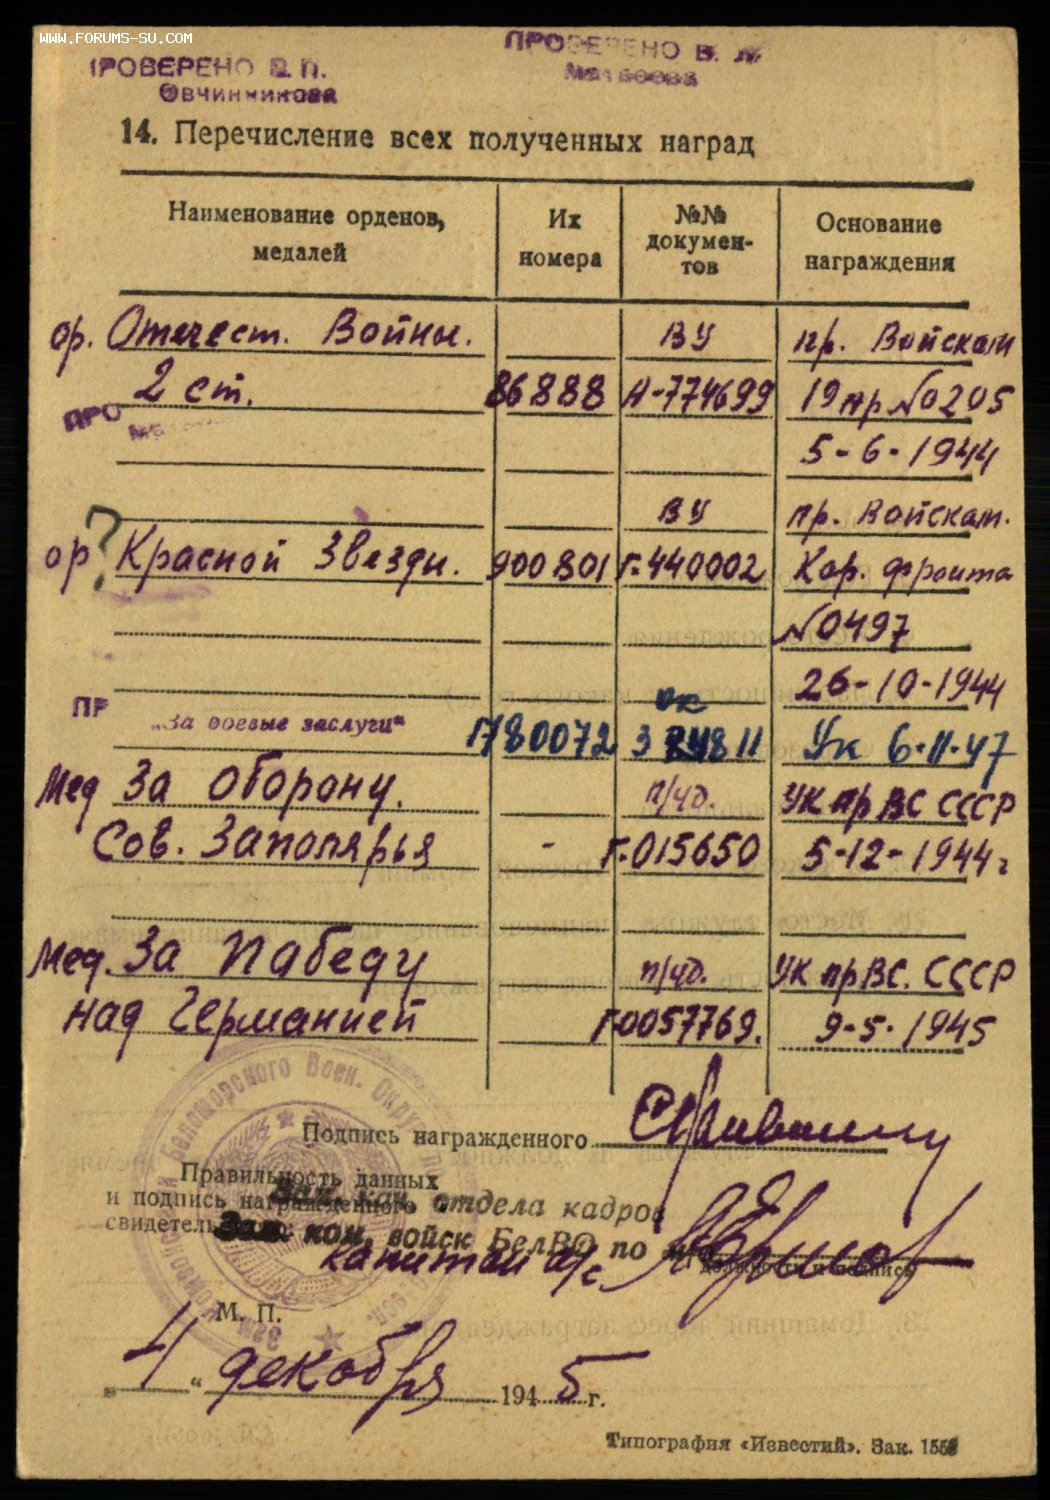 WWW.FORUMS-SU.COM
ПРОВЕРЕНО В. Л.
Матвеева
ПРОВЕРЕНО В. П.
Овчинникова
14. Перечисление всех полученных наград
Наименование орденов, медалей
Их номера
№№ докумен-тов
Основание награждения
ор. Отечест. Войны. ВУ пр. Войскам
2 ст. 86888 А-774699 19 ар №0205
ПРО
5-6-1944
ВУ пр. Войскам.
ор ? Красной Звезды. 900801 Г.440002 Кар. фронта
№0497
26-10-1944
ПР ок
„За боевые заслуги“ 1780072 3 811 Ук 6·11·47
Мед За оборону. п/уд. УК пр ВС СССР
Сов. Заполярья - Г.015650 5-12-1944г
Мед. За Победу п/уд. УК пр ВС. СССР
над Германией Г0057769. 9-5-1945
Беломорского Воен. Округа
Подпись награжденного
Правильность данных
и подпись награжденного
Зам. нач. отдела кадров
свидетельствую:
Зам. ком. войск БелВО по
капитан а/с
(должность и подпись
М. П.
4 " декабря 1945 г.
Типография «Известий». Зак. 155